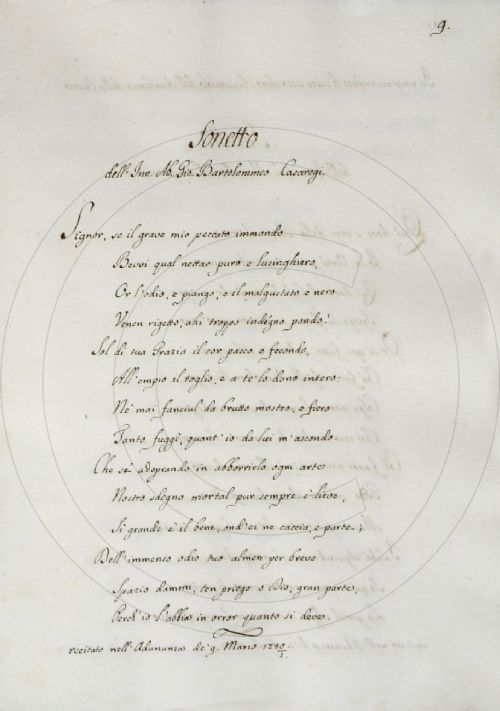 9.
Sonetto
dell'Inn. Ab. Gio. Bartolommeo Casaregi.
Signor, se il grave mio peccato immondo
Bevvi qual nettar puro e lusinghiero,
Or l'odio, e piango, e il malgustato e nero
Venen rigetto, ahi troppo indegno pondo!
Sol di tua Grazia il cor pasco, e fecondo,
All'empio il toglio, e a te lo dono intero:
Nè mai fanciul da brutto mostro, e fiero
Tanto fuggì, quant'io da lui m'ascondo.
Che se adoprando in abborrirlo ogni arte
Nostro sdegno mortal pur sempre è lieve,
Sì grande è il bene, ond'ei ne caccia, e parte;
Dell'immenso odio tuo almen per breve
Spazio dammi, ten priego o Dio, gran parte,
Perch'io l'abbia in orror quanto si deve.
recitato nell'Adunanza de' 9. Marzo